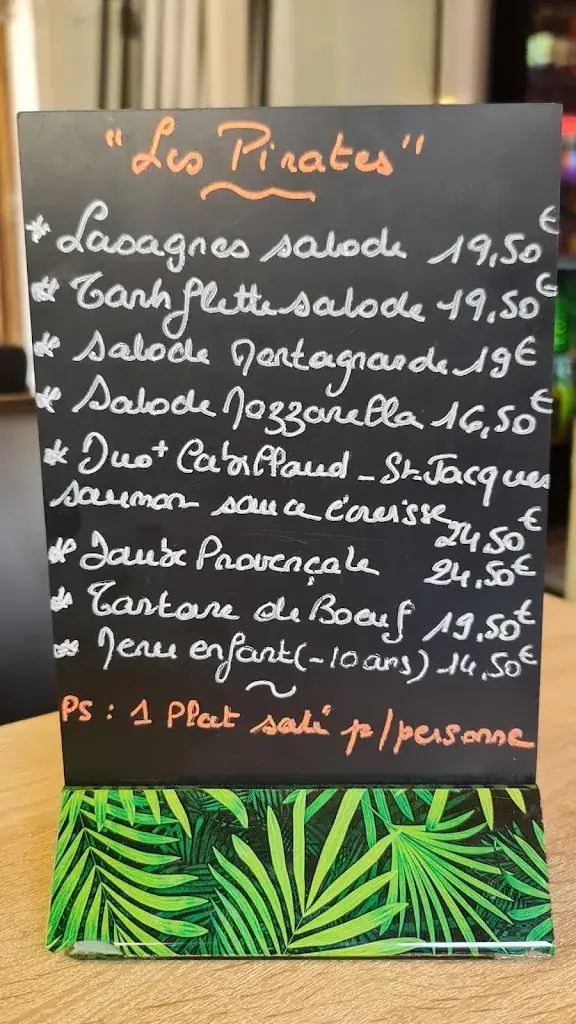 "Les Pirates"
* Lasagnes salade 19,50€
* Tartiflette salade 19,50€
* Salade Montagnarde 19€
* Salade Mozzarella 16,50€
* Duo+ Cabillaud - St-Jacques
saumon sauce écrevisse 24,50€
* Provençale 24,50€
* Tartare de Boeuf 19,50€
* Menu enfant (-10 ans) 14,50€
PS : 1 Plat salé p/personne